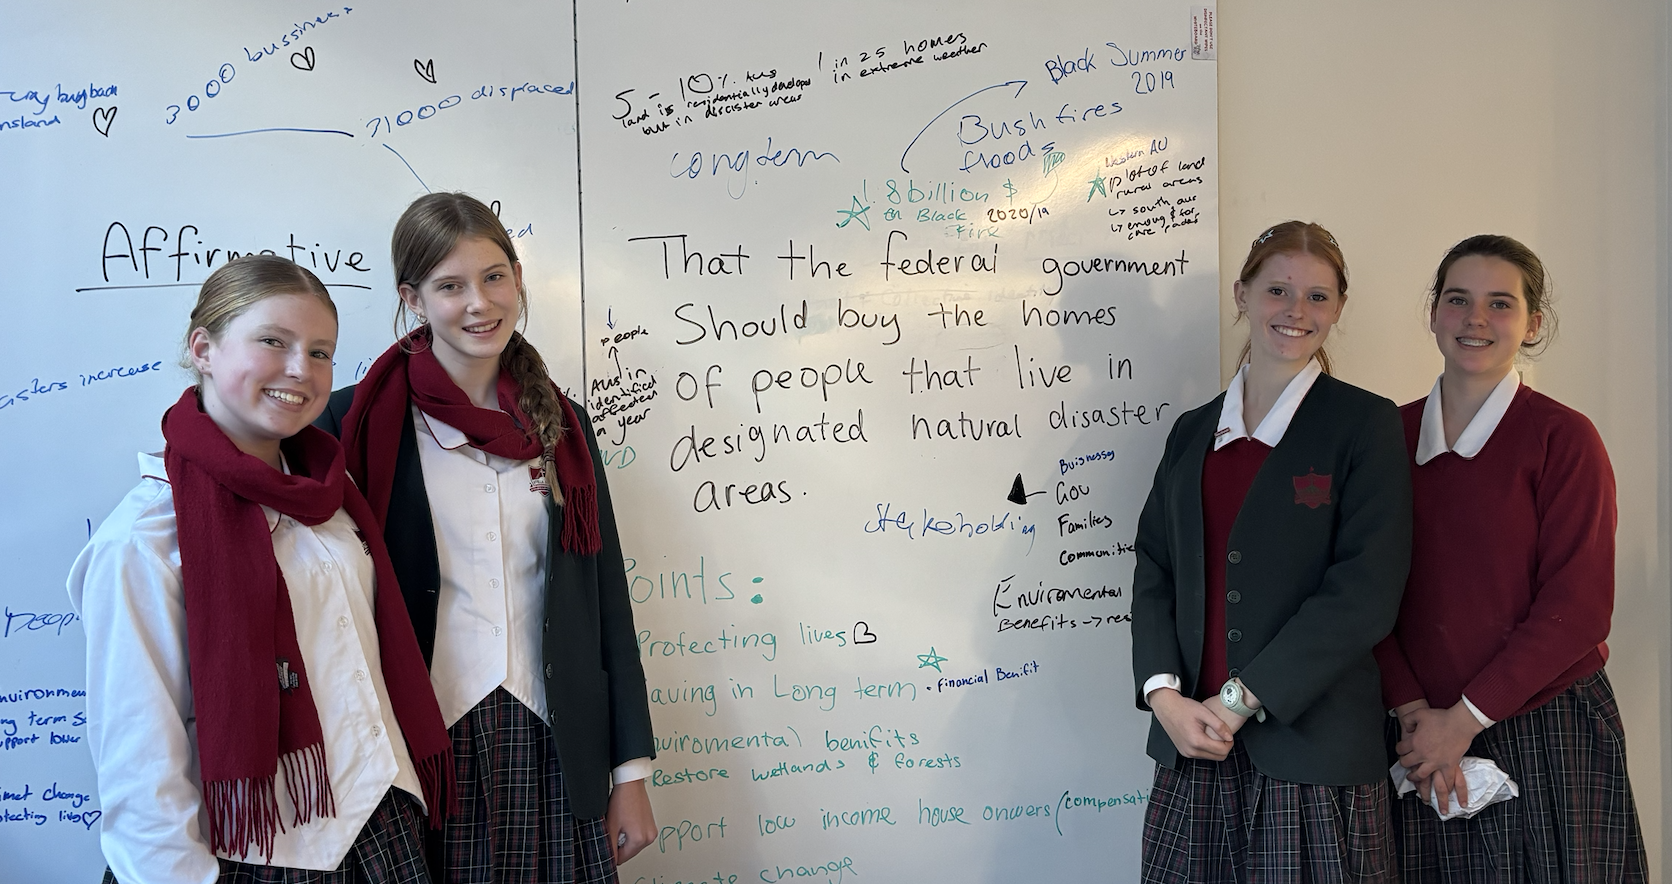 3000 bussiness
buyback
71000 displaced
Affirmative
asters increase
Peop
ng term
upport lower
change
otecting lives
5 - 10% Aus
land is residentially developed
but in disaster areas
1 in 25 homes
in extreme weather
Black Summer
2019
Bushfires
floods
long term
8 billion $
in Black 2020/19
Fire
Western AU
lot of land
rural areas
↳ south aus
That the federal government
Should buy the homes
of people that live in
designated natural disaster
areas.
people
Aus in
identified
affected
a year
Stakeholding
Buisnesses
Gov
Families
Communitie
Enviromental
Benefits → res
Points:
Protecting lives
aving in Long term • Financial Benifit
nviromental benifits
Restore wetlands & forests
upport low income house onwers (compensati
Climate change